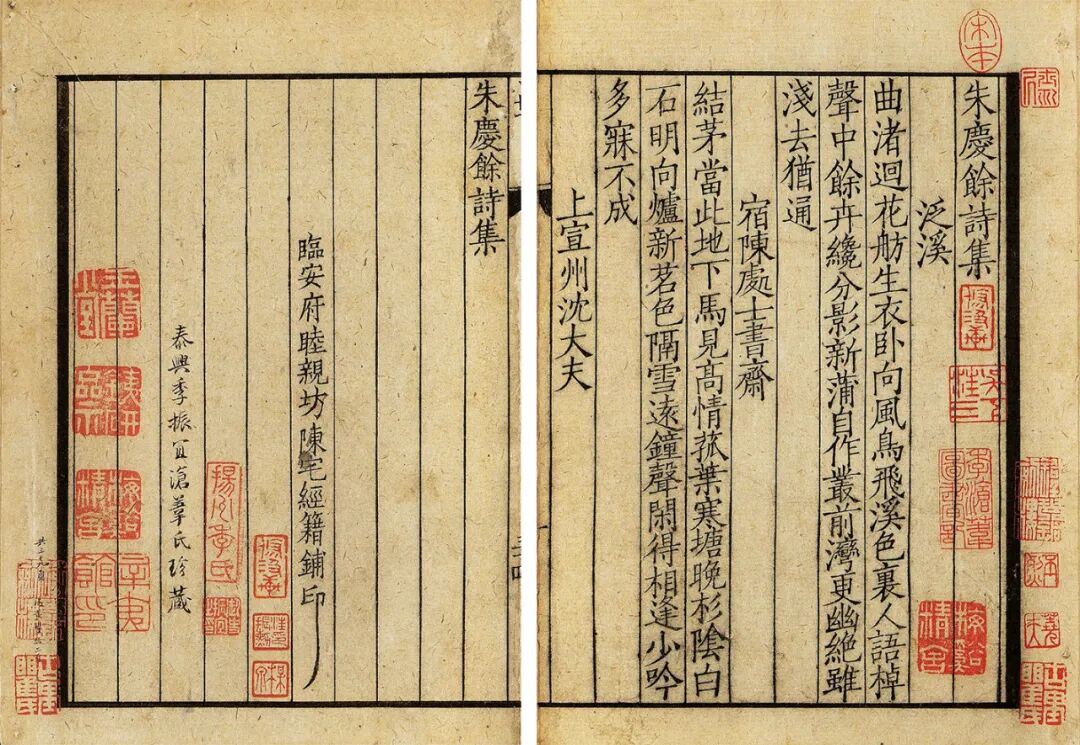 宋本
朱慶餘詩集
季滄葦圖書記
梅谿精舍
泛溪
曲渚迴花舫生衣卧向風鳥飛溪色裏人語棹
聲中餘卉纔分影新蒲自作叢前灣更幽絶雖
淺去猶通
宿陳處士書齋
結茅當此地下馬見髙情菰葉寒塘晚杉陰白
石明向爐新茗色隔雪遠鐘聲閑得相逢少吟
多寐不成
上宣州沈大夫
朱慶餘詩集
臨安府睦親坊陳宅經籍鋪印
揚州季氏
泰興季振宜滄葦氏珍藏
玉蘭堂
梅谿精舍
辛夷館印